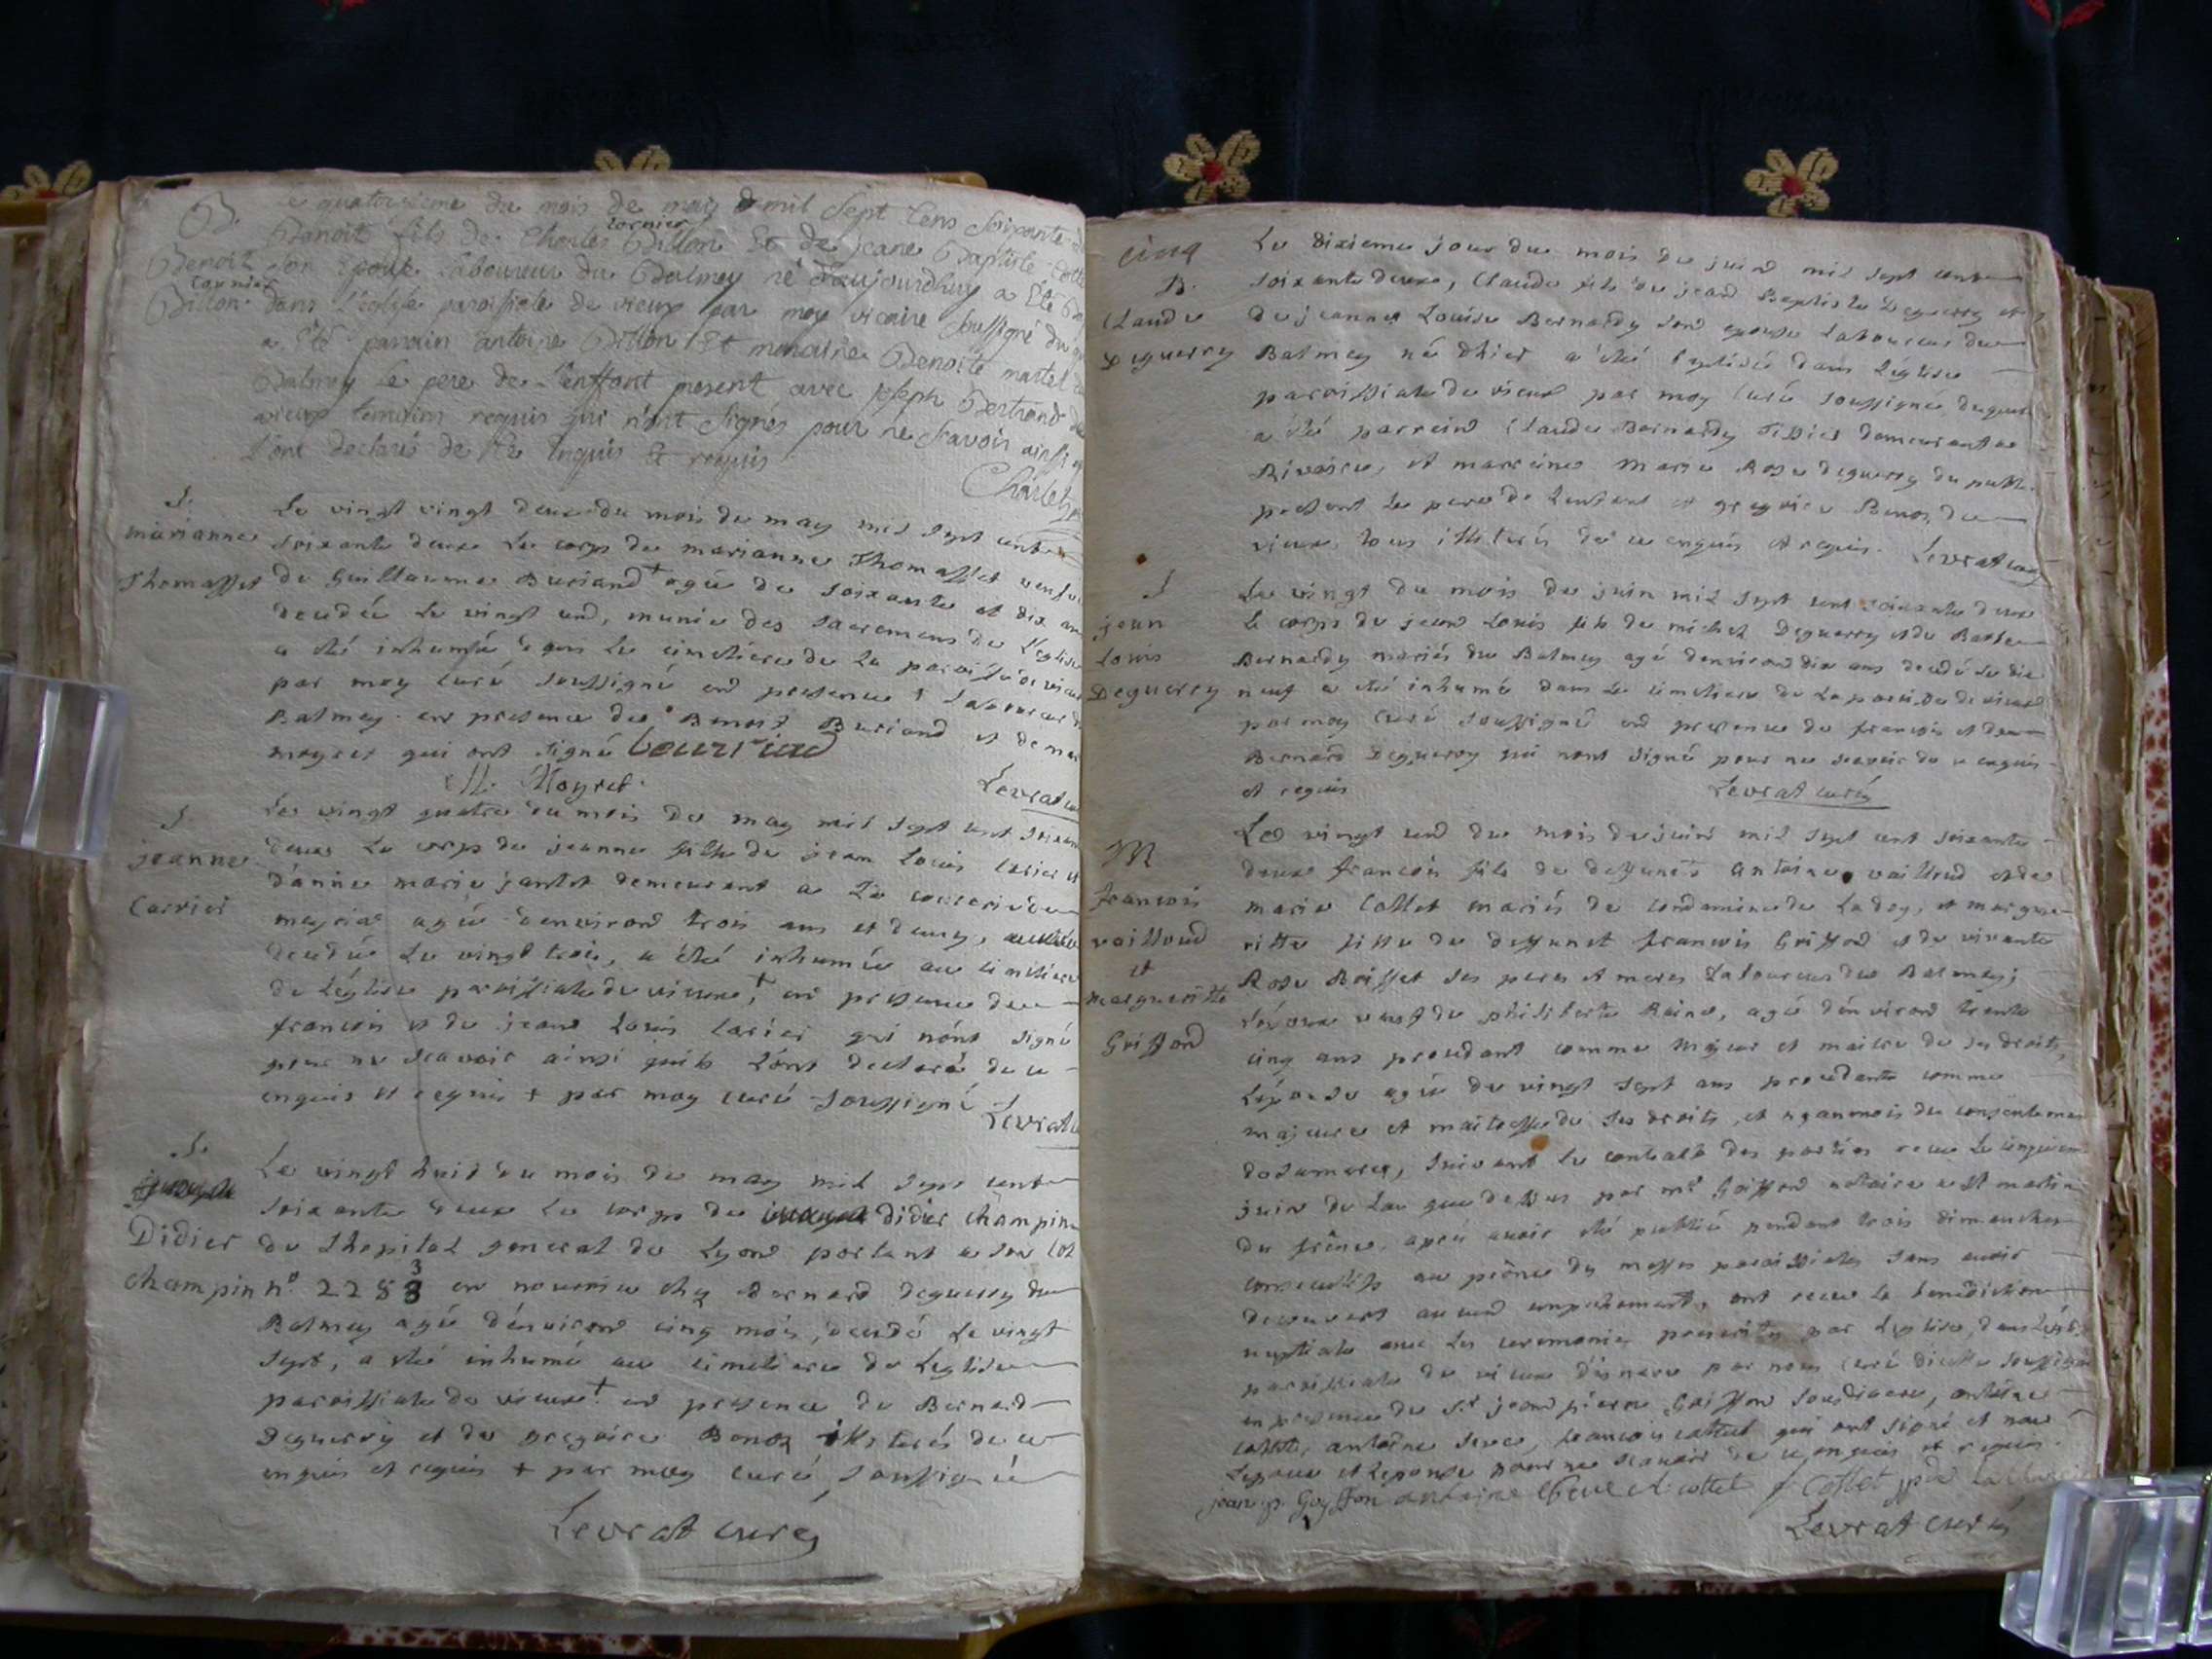 B.
Benoit
cornier
Billon
le quatorzieme du mois de may mil sept cens soixante
Benoit fils de Charles cornier Billon et de jeane Baptiste
son epouse laboureur du Balmey né d'aujourdhuy a été
dans l'eglise paroissiale de vieux par moy vicaire soussigné du
a été parrain antoine Billon et marraine Benoite martel
Balmey le pere de l'enffant present avec joseph Bertrand de
vieux temoins requis qui n'ont signés pour ne scavoir ainsi
l'ont declarés de ce enquis et requis
Charlet
S.
marianne
Thomasset
Le vingt vingt deux du mois de may mil sept cent
soixante deux le corps de marianne Thomasset veufve
de Guillaume Buriand + agée de soixante et dix ans
decedée le vingt und, munie des sacremens de l'eglise
a été inhumée dans le cimetiere de la paroisse de vieux
par moy curé soussigné end presence + laboureur
Balmey en presence de Benoit Buriand et de
moyret qui ont signé bouriand
Moyret
Levrat
S
jeanne
Carrier
Le vingt quatre du mois de may mil sept cent soixante
deux le corps de jeanne fille de jean Louis carier et
d'anne marie jantet demeurant a
meyriat agée denvirond trois ans et demy,
decedée le vingt trois, a été inhumée au cimetiere
de l'eglise paroissiale de vieux, + en presence de
francois et de jeand Louis carier qui n'ont signé
pour ne scavoir ainsi quils l'ont declaré de ce
enquis et requis + par moy curé soussigné
Levrat
S.
Didier
champin
Le vingt huit du mois de may mil sept cent
soixante deux le corps de didier champin
de Lhopital general de Lyond portant a son col
n° 2283 3 en nourrice chez Bernard deguerry du
Balmey agé d'environd cinq mois, decedé le vingt
sept, a été inhumé au cimetiere de Leglise
paroissiale de vieux + end presence de Bernard
Deguerry et de gregoire Benoz illiterés de ce
enquis et requis + par moy curé soussigné
Levrat curé
cinq
B.
Claude
Deguerry
Le dixieme jour du mois de juind mil sept cent
soixante deux, Claude fils de jeand Baptiste Deguerry et
de jeanne Louise Bernardy sond epouse laboureur du
Balmey né dhier a été baptisé dans Léglise
paroissiale de vieux par moy curé soussigné, duquel
a été parreind Claude Bernardy demeurant a
et marreine marie Rose deguerry du
present le pere de Lenfant et gregoire Benoz de
vieux tous illiterés de ce enquis et requis. Levrat curé
S
jean
Louis
Deguerry
Le vingt du mois de juin mil sept cent soixante deux
le corps de jeand Louis fils de michel Deguerry et de
Bernardy mariés du Balmey agé denvirond dix ans decedé le dix
neuf a été inhumé dans le cimetiere de la paroisse de vieux
par moy curé soussigné end presence de francois et de
Bernard Deguerry qui nont signé pour ne scavoir de ce enquis
et requis
Levrat curé
M
francois
vailloud
et
margueritte
Griffond
Le vingt und du mois de juind mil sept cent soixante
deux francois fils de deffunct antoine vailloud et de
marie Collet mariés de condamine de Ladoy, et margue-
ritte fille de deffunct francois Griffond et de vivante
Rose Boisset ses peres et meres laboureurs du Balmey;
L'époux veuf de philiberte Reine, agé d'environd trente
cinq ans procedant comme majeur et maitre de ses droits,
L'épouse agée de vingt sept ans procedante comme
majeure et maitresse de ses droits, et neanmois du consentement
de sa mere, suivant le contract des parties receu le cinquieme
juin de Lan que dessus par me Goiffond notaire a st martin
du frêne, apres avoir été publié pendant trois dimanches
consecutifs au prône des messes paroissiales sans avoir
decouvert aucund empechement, ont receu la benediction
nuptiale avec les ceremonies prescrites par Leglise, dans
paroissiale de vieux d'isnave par nous curé dicelle soussigné
en presence de Sr jeand pierre Goiffon soudiacre, antoine
collet, antoine francois collet qui ont signé et non
Lepoux et Lepouse pour ne scavoir de ce enquis et requis.
jean. p. Goyffon antoine A: collet f collet
Levrat curé